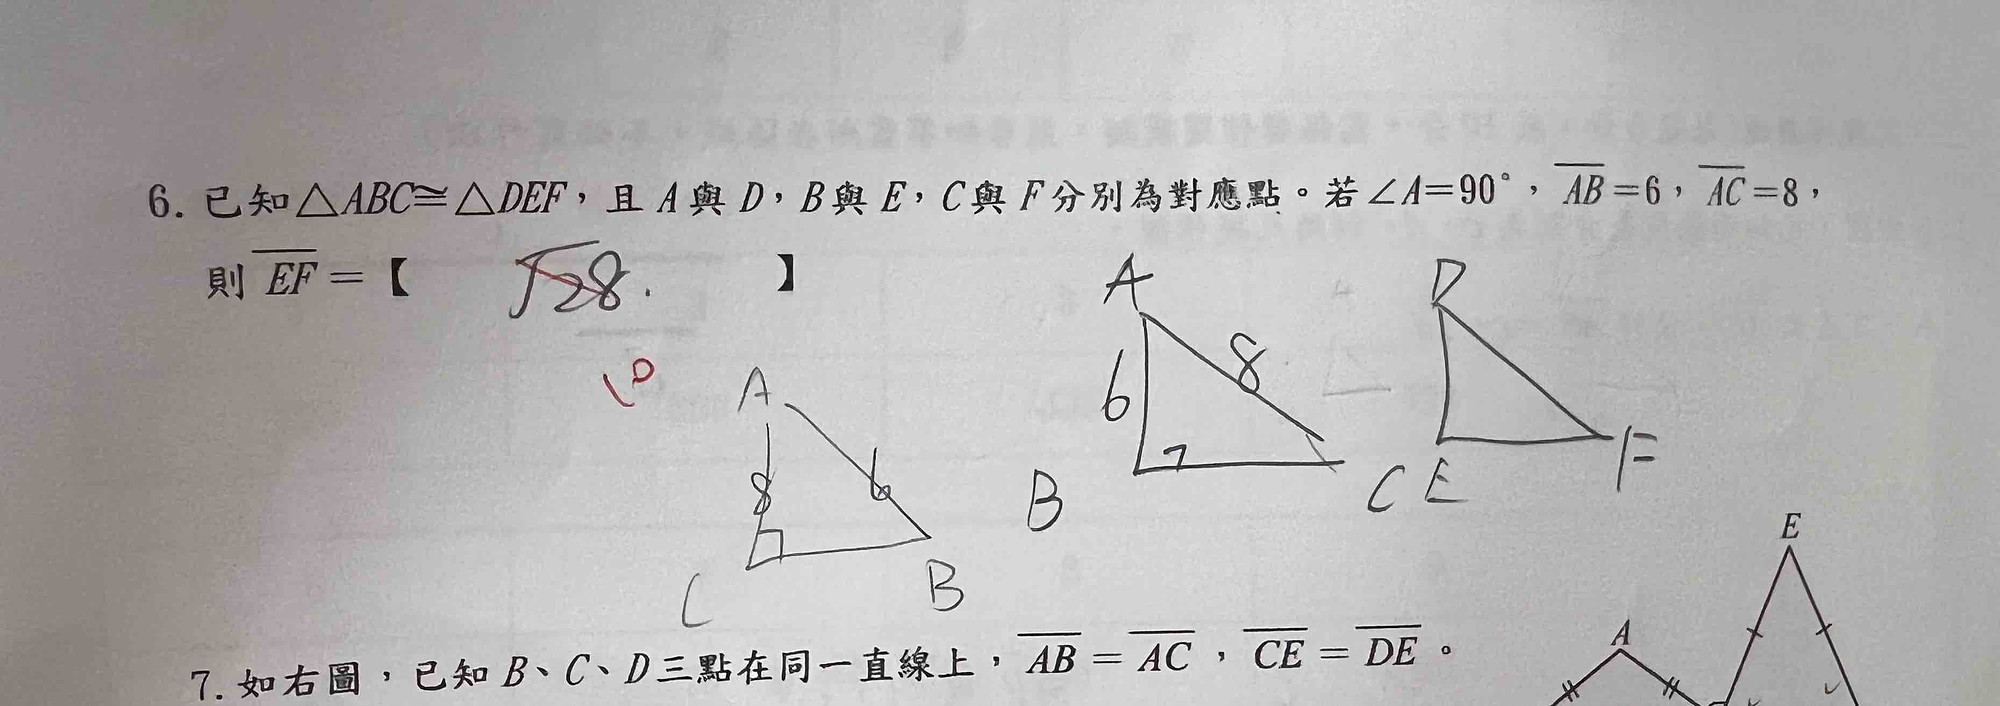 6. 已知△ABC≅△DEF,且 A 與 D,B 與 E,C 與 F 分別為對應點。若∠A=90°,\overline{AB}=6,\overline{AC}=8,
則 \overline{EF}=【 √28. 】
10
A
8
6
C
B
A
6
8
B
C
D
E
F
7. 如右圖,已知 B、C、D 三點在同一直線上,\overline{AB}=\overline{AC},\overline{CE}=\overline{DE}。
E
A